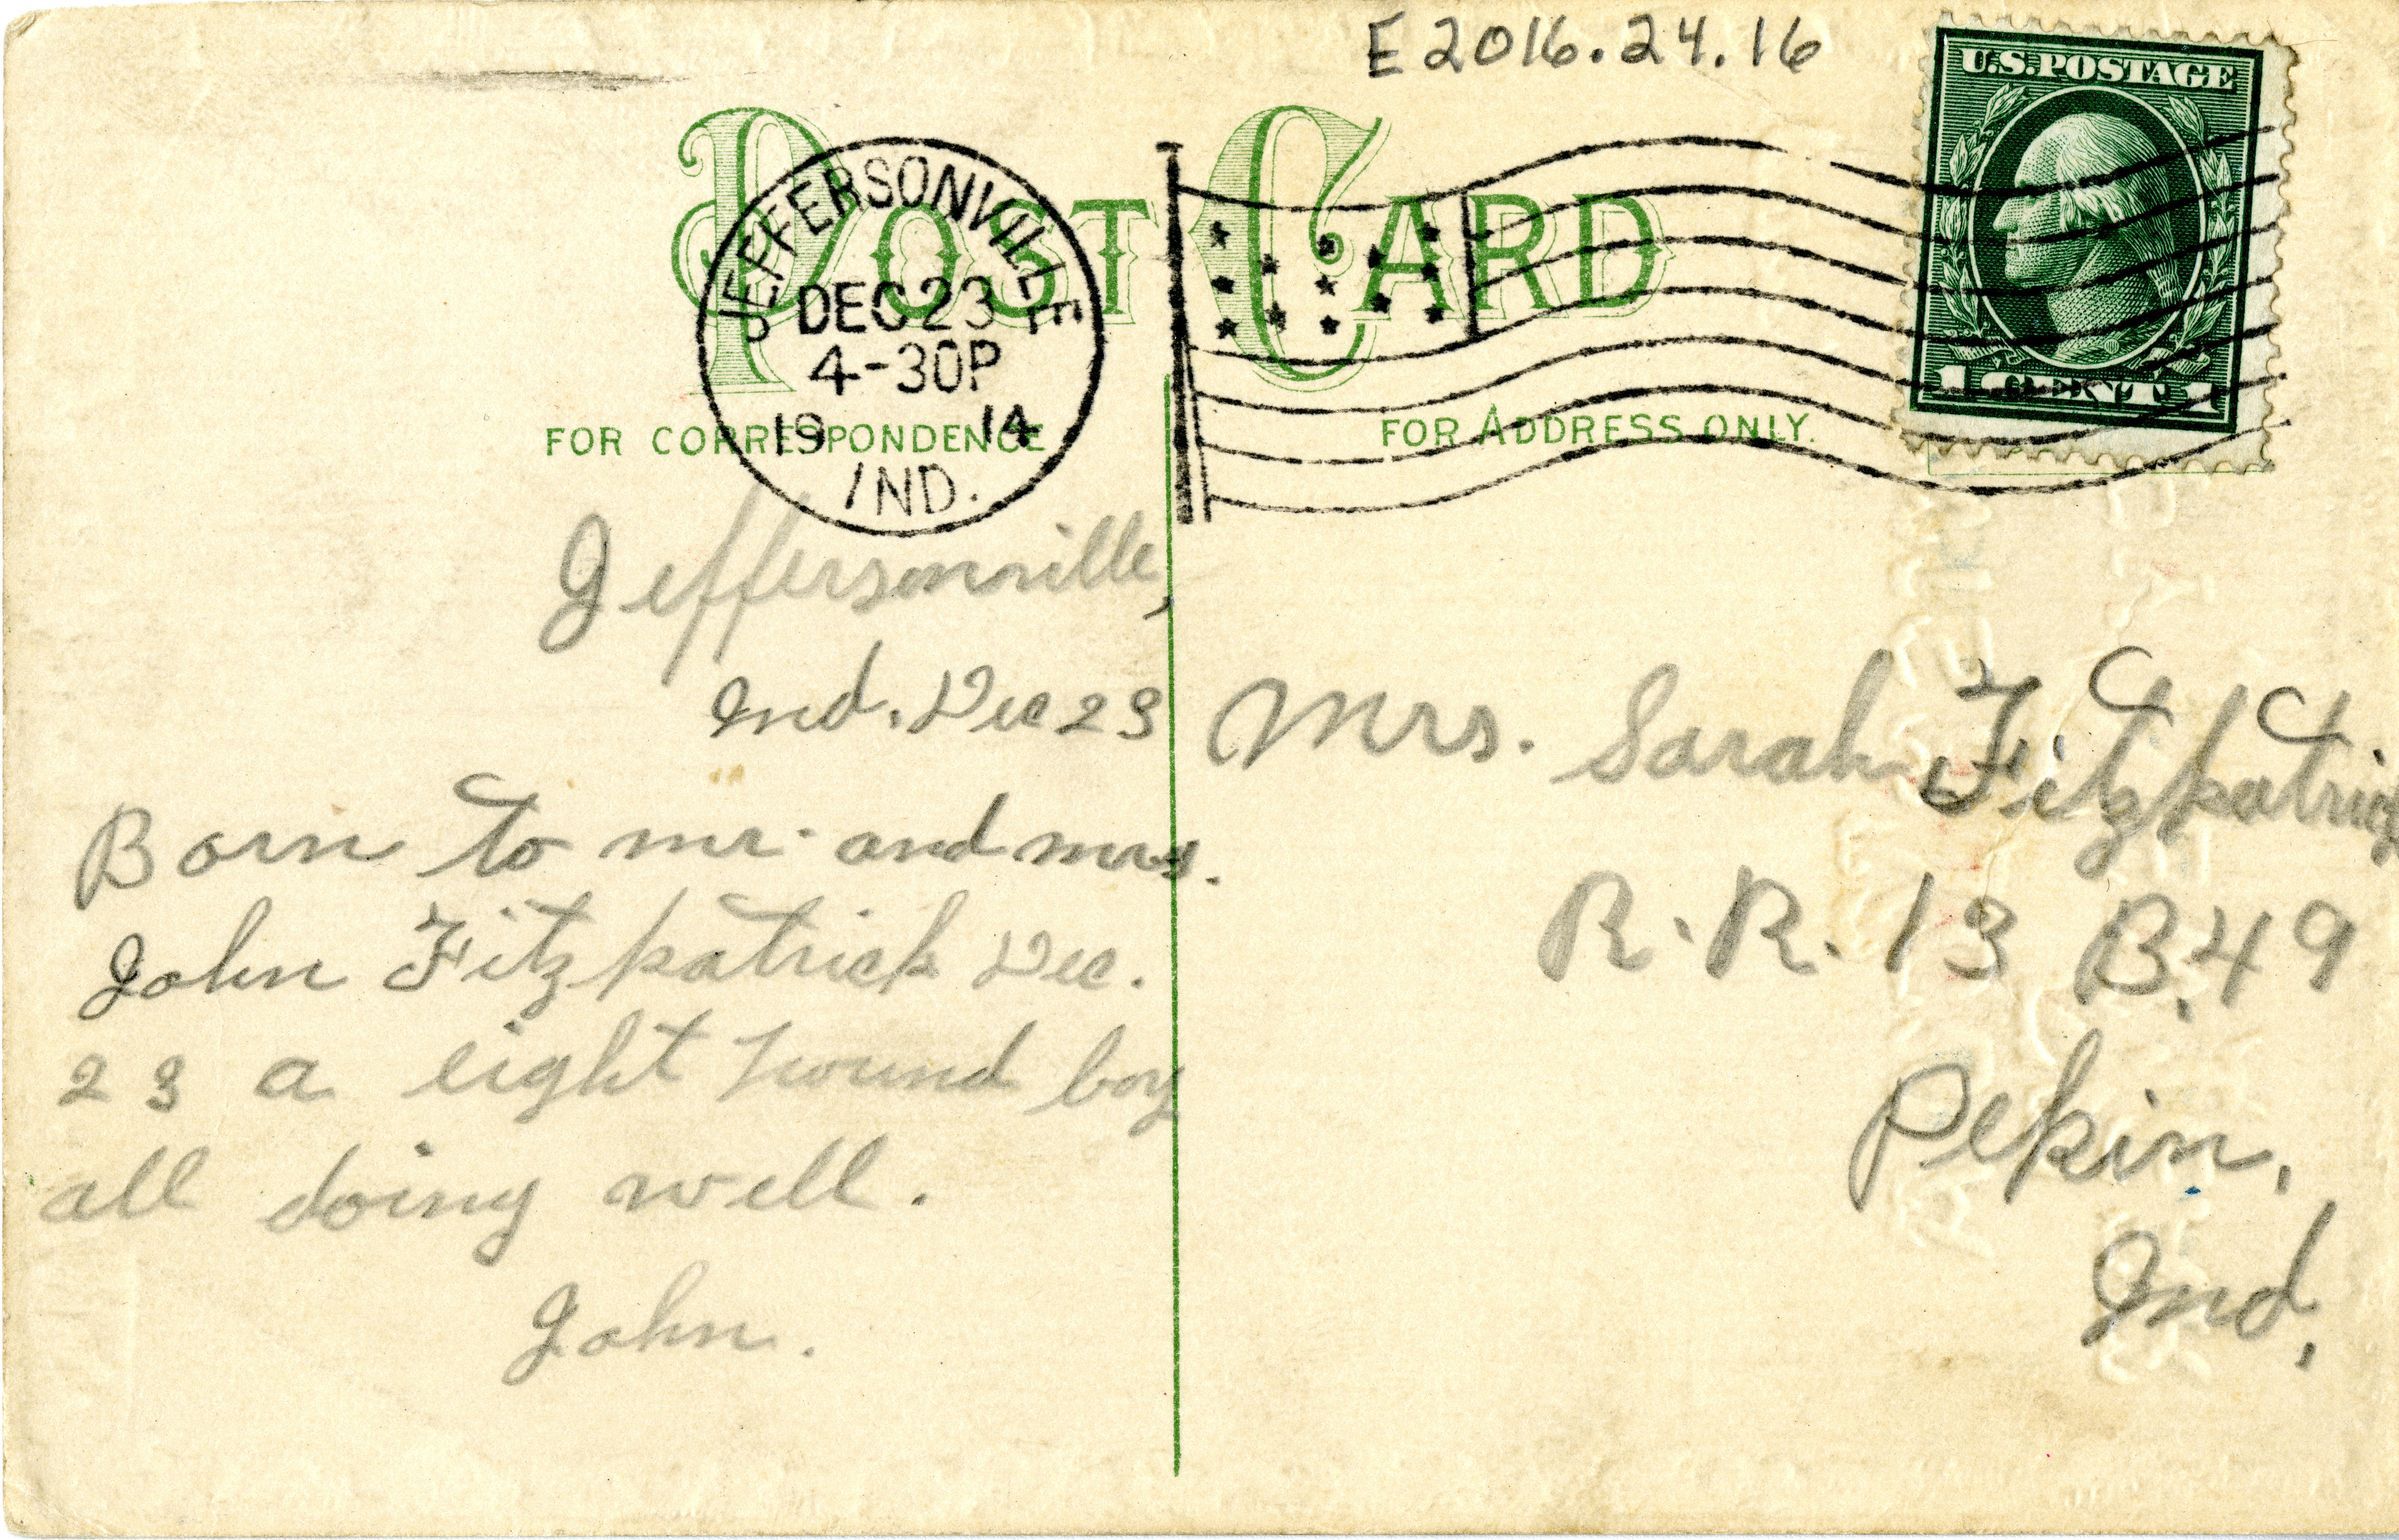 E2016.24.16
U.S.POSTAGE
POST CARD
JEFFERSONVILLE
DEC 23
4-30P
19 14
IND.
1 CENT 1
FOR CORRESPONDENCE
FOR ADDRESS ONLY.
Jeffersonville,
Ind. Dec 23
Born to mr. and mrs.
John Fitzpatrick Dec.
23 a eight pound boy
all doing well.
John.
Mrs. Sarah Fitzpatrick
R.R. 13 B.49
Pekin,
Ind,